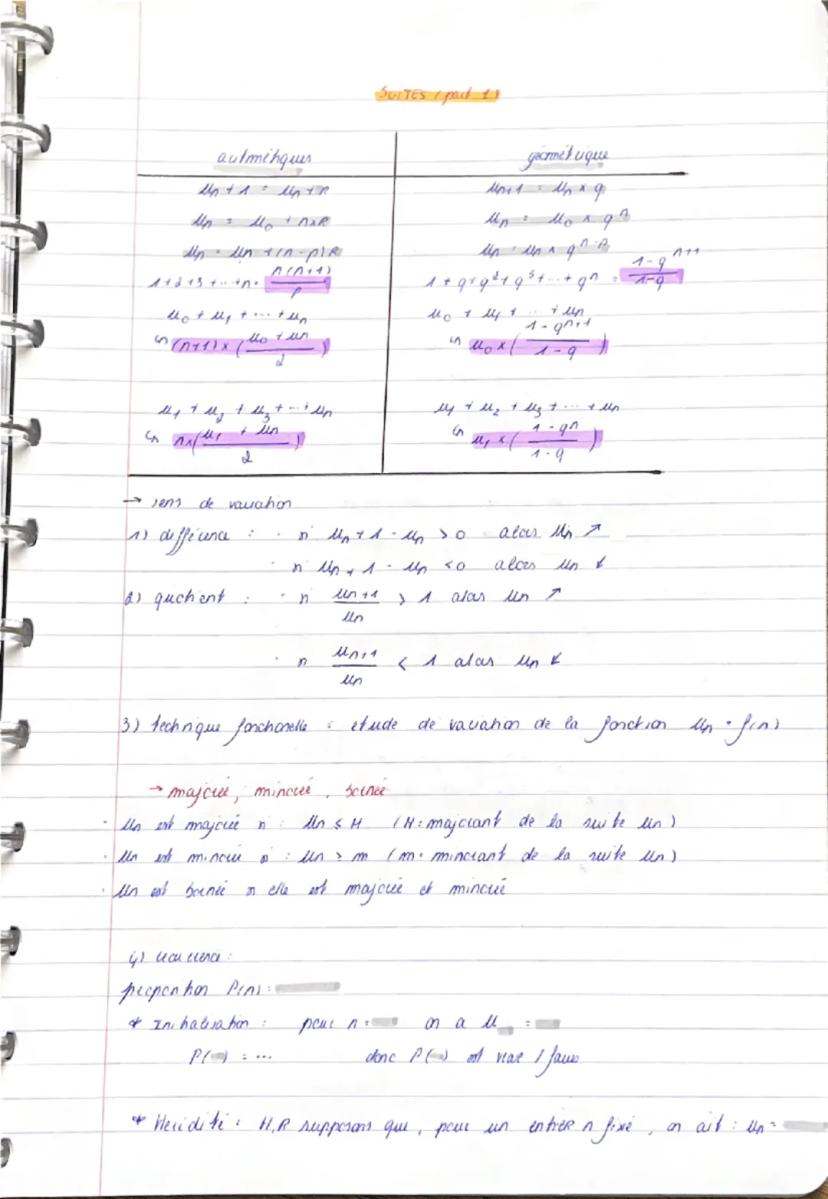 SUITES (part 1)
aritmétiques géométrique
Un+1 = Un+R Un+1 = Un x q
Un = U0 + nxR Un = U0 x q^n
Un = Up + (n-p)R Un = Up x q^n-p
1+2+3+...+n = n(n+1)/2 1+q+q^2+q^3+...+q^n = 1-q^n+1/1-q
U0 + U1 + ... + Un U0 + U1 + ... + Un
↪ (n+1) x (U0 + Un/2) ↪ U0 x (1-q^n+1/1-q)
U1 + U2 + U3 + ... + Un U1 + U2 + U3 + ... + Un
↪ nx(U1 + Un/2) ↪ U1 x (1-q^n/1-q)
→ sens de variation
1) différence : · si Un+1 - Un >0 alors Un ↗
· si Un+1 - Un <0 alors Un ↙
2) quotient : · si Un+1/Un > 1 alors Un ↗
· si Un+1/Un < 1 alors Un ↙
3) technique fonctionelle : etude de variation de la fonction Un = f(n)
→ majorée, minorée, bornée
· Un est majorée si : Un ≤ M (M: majorant de la suite Un)
· Un est minorée si : Un > m (m: minorant de la suite Un)
· Un est bornée si elle est majorée et minorée
4) récurrence :
proposition P(n) :
* Initialisation : pour n = on a U =
P( ) = ... donc P( ) est vraie / fausse
* Hérédité : H.R supposons que, pour un entier n fixé, on ait : Un =